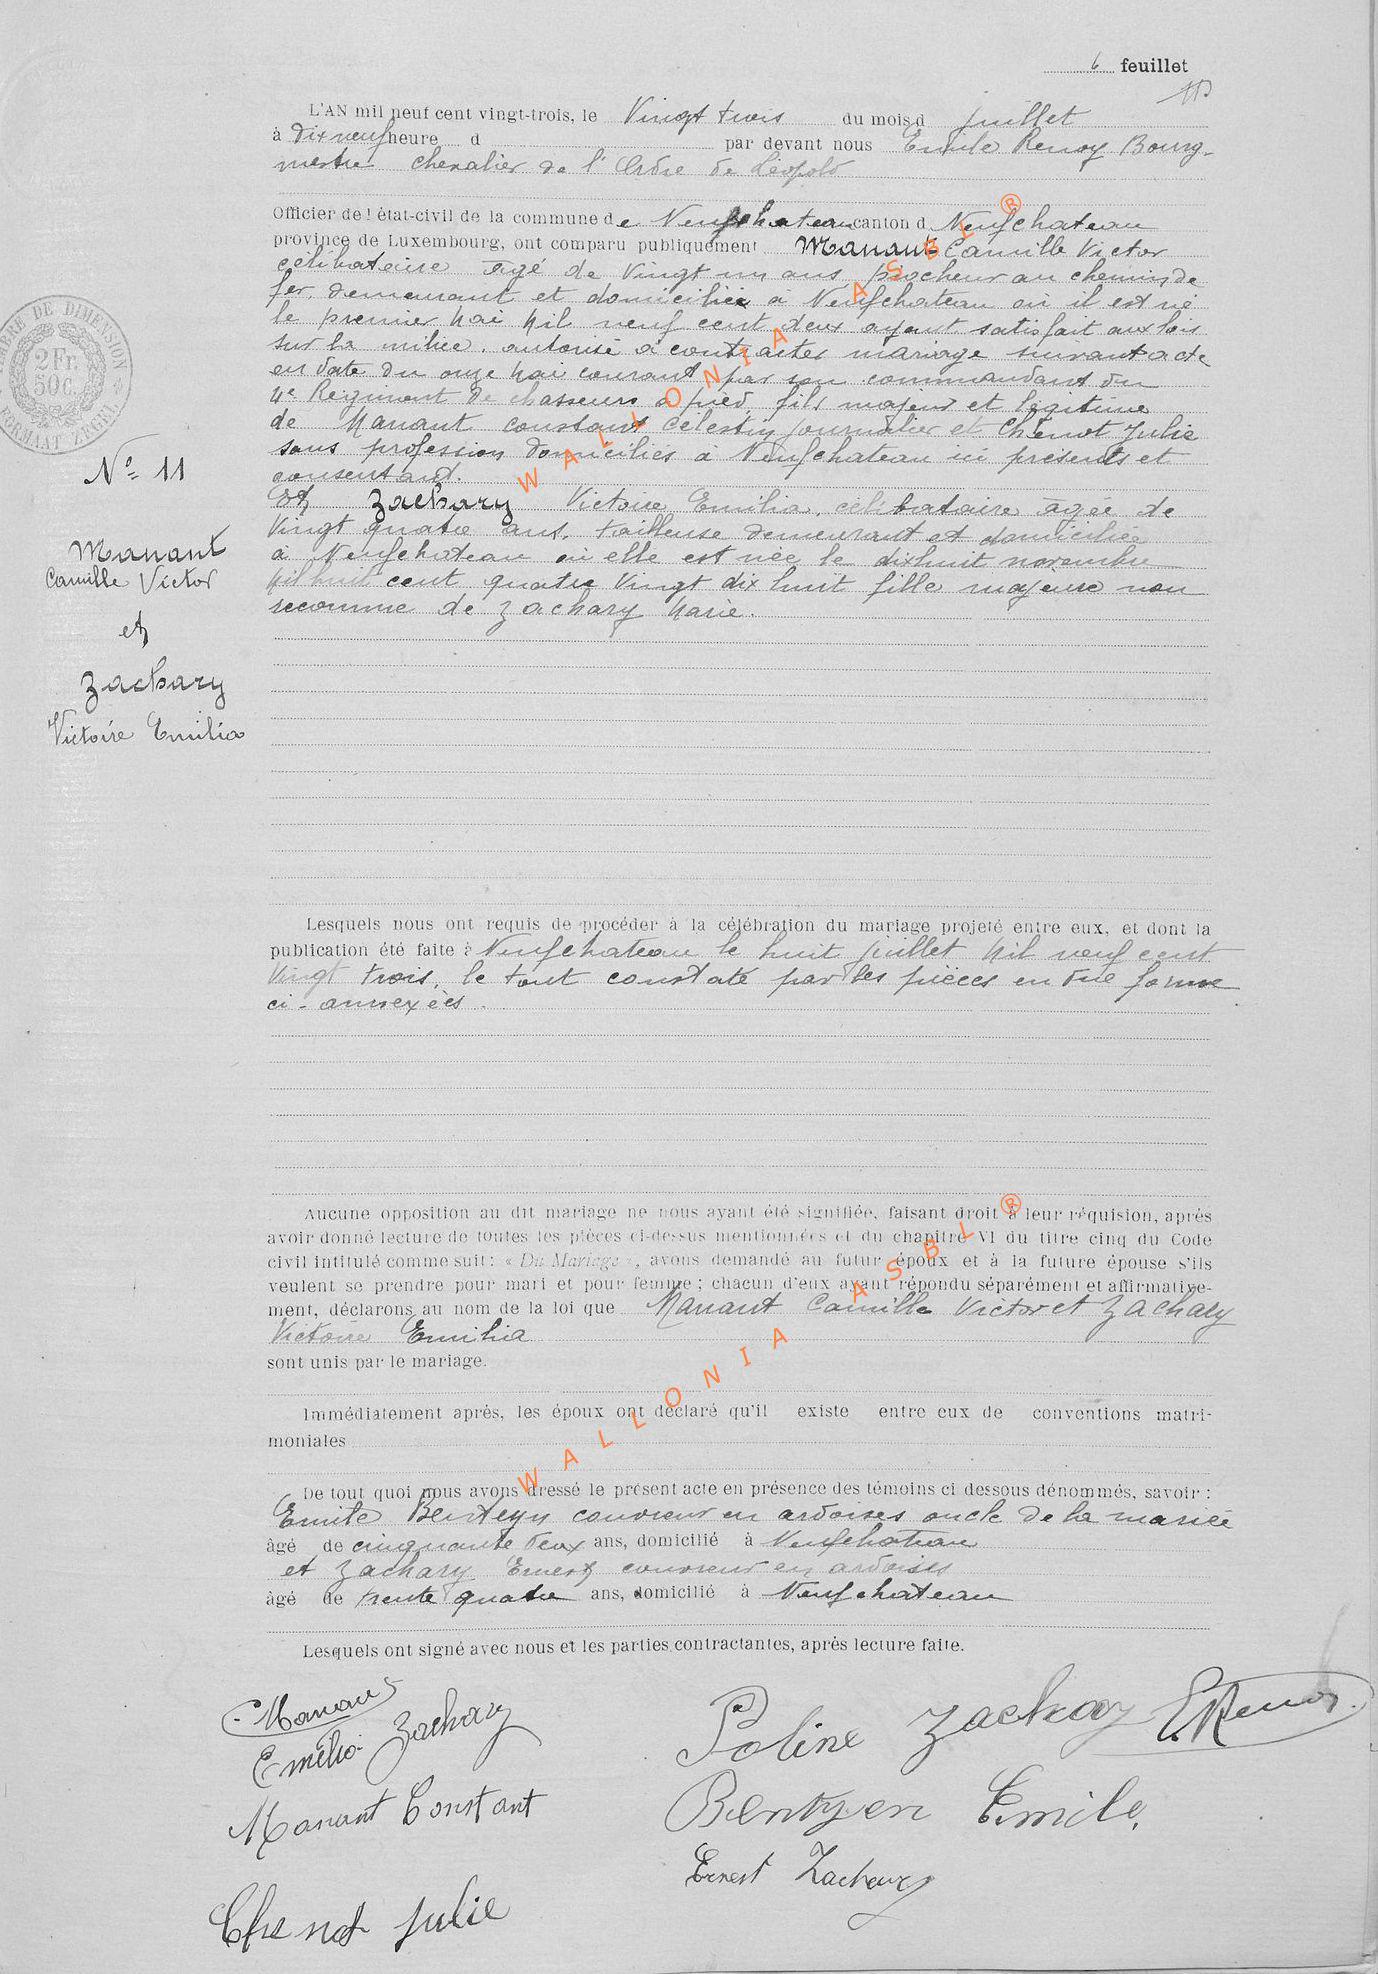 6 feuillet
L'AN mil neuf cent vingt-trois, le Vingt trois du mois d juillet
à Dix neuf heure d par devant nous Emile Renoy Bourg-
mestre chevalier de l'Ordre de Léopold
Officier de l'état-civil de la commune de Neufchateau canton d Neufchateau
province de Luxembourg, ont comparu publiquement Manant Camille Victor
célibataire âgé de Vingt un ans piocheur au chemin de
fer, demeurant et domicilié à Neufchateau où il est né
le premier Mai Mil neuf cent deux ayant satisfait aux lois
sur la milice. autorisé à contracter mariage suivant acte
en date du onze Mai courant par son commandant du
4e Régiment de chasseurs à pied fils majeur et légitime
de Manant Constant Célestin journalier et Chenot Julie
sans profession domiciliés à Neufchateau ici présents et
consentant.
Et Zachary Victoire Emilia, célibataire âgée de
Vingt quatre ans, tailleuse demeurant et domiciliée
à Neufchateau où elle est née le dixhuit novembre
Mil huit cent quatre Vingt dix huit fille majeure non
reconnue de Zachary Marie.
TIMBRE DE DIMENSION
2 Fr.
50c.
FORMAAT ZEGEL
No 11
Manant
Camille Victor
et
Zachary
Victoire Emilia
Lesquels nous ont requis de procéder à la célébration du mariage projeté entre eux, et dont la
publication été faite à Neufchateau le huit juillet Mil neuf cent
Vingt trois, le tout constaté par les pièces en due forme
ci-annexées.
Aucune opposition au dit mariage ne nous ayant été signifiée, faisant droit à leur réquision, après
avoir donné lecture de toutes les pièces ci-dessus mentionnées et du chapitre VI du titre cinq du Code
civil intitulé comme suit: « Du Mariage », avons demandé au futur époux et à la future épouse s'ils
veulent se prendre pour mari et pour femme; chacun d'eux ayant répondu séparément et affirmative-
ment, déclarons au nom de la loi que Manant Camille Victor et Zachary
Victoire Emilia
sont unis par le mariage.
Immédiatement après, les époux ont déclaré qu'il existe entre eux de conventions matri-
moniales
De tout quoi nous avons dressé le présent acte en présence des témoins ci dessous dénommés, savoir:
Emile Benteyn couvreur en ardoises oncle de la mariée
âgé de cinquante deux ans, domicilié à Neufchateau
et Zachary Ernest couvreur en ardoises
âgé de trente quatre ans, domicilié à Neufchateau
Lesquels ont signé avec nous et les parties contractantes, après lecture faite.
Manant
Emélia Zachary
Manant Constant
Chenot Julie
Poline Zachary E Renoy
Bentyen Emile.
Ernest Zachary
WALLONIA ASBL ®
WALLONIA ASBL ®